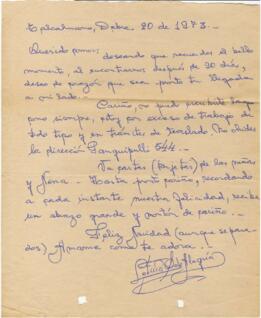 Talcahuano, Dcbre. 20 de 1973.-
Querido amor:
deseando que recuerdes el bello
momento, al encontrarnos después de 20 días,
deseo de corazón que sea pronto tu llegada
a mi lado.
Cariño, no puedo escribirte largo
como siempre, estoy por exceso de trabajo de
todo tipo y en trámites de traslado. No olvides
la dirección Panguipulli 544.-
Tu cartas (tarjetas) de las niñas
y Nena.- Hasta pronto cariño, recordando
a cada instante nuestra felicidad, recibe
un abrazo grande y montón de cariño.-
Feliz Navidad (aunque separa-
dos) Ámame como te adora.-